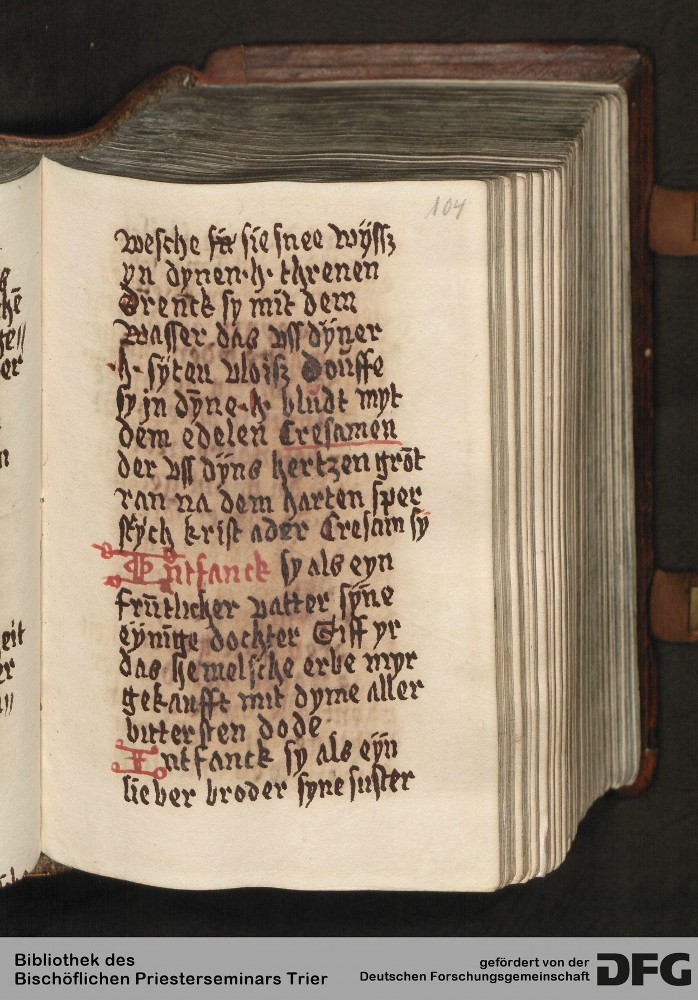 104
wesche sie snee wÿssz
yn dÿnen·h· threnen
Drenck sy mit dem
wasser das uss dÿner
·h· sÿten vloisz Douffe
sy jn dÿne·h· blůdt myt
dem edelen Cresamen
der uss dÿns hertzen grōt
ran na dem harten sper
stÿch krist ader Cresam sÿ
Intfanck sy als eyn
frūtlicher vatter sÿne
eÿnige dochter Giff yr
das hemelsche erbe myr
gekaufft mit dyme aller
bittersten dode·
Intfanck sy als eÿn
lieber broder syne suster
Bibliothek des
Bischöflichen Priesterseminars Trier
gefördert von der
Deutschen Forschungsgemeinschaft
DFG